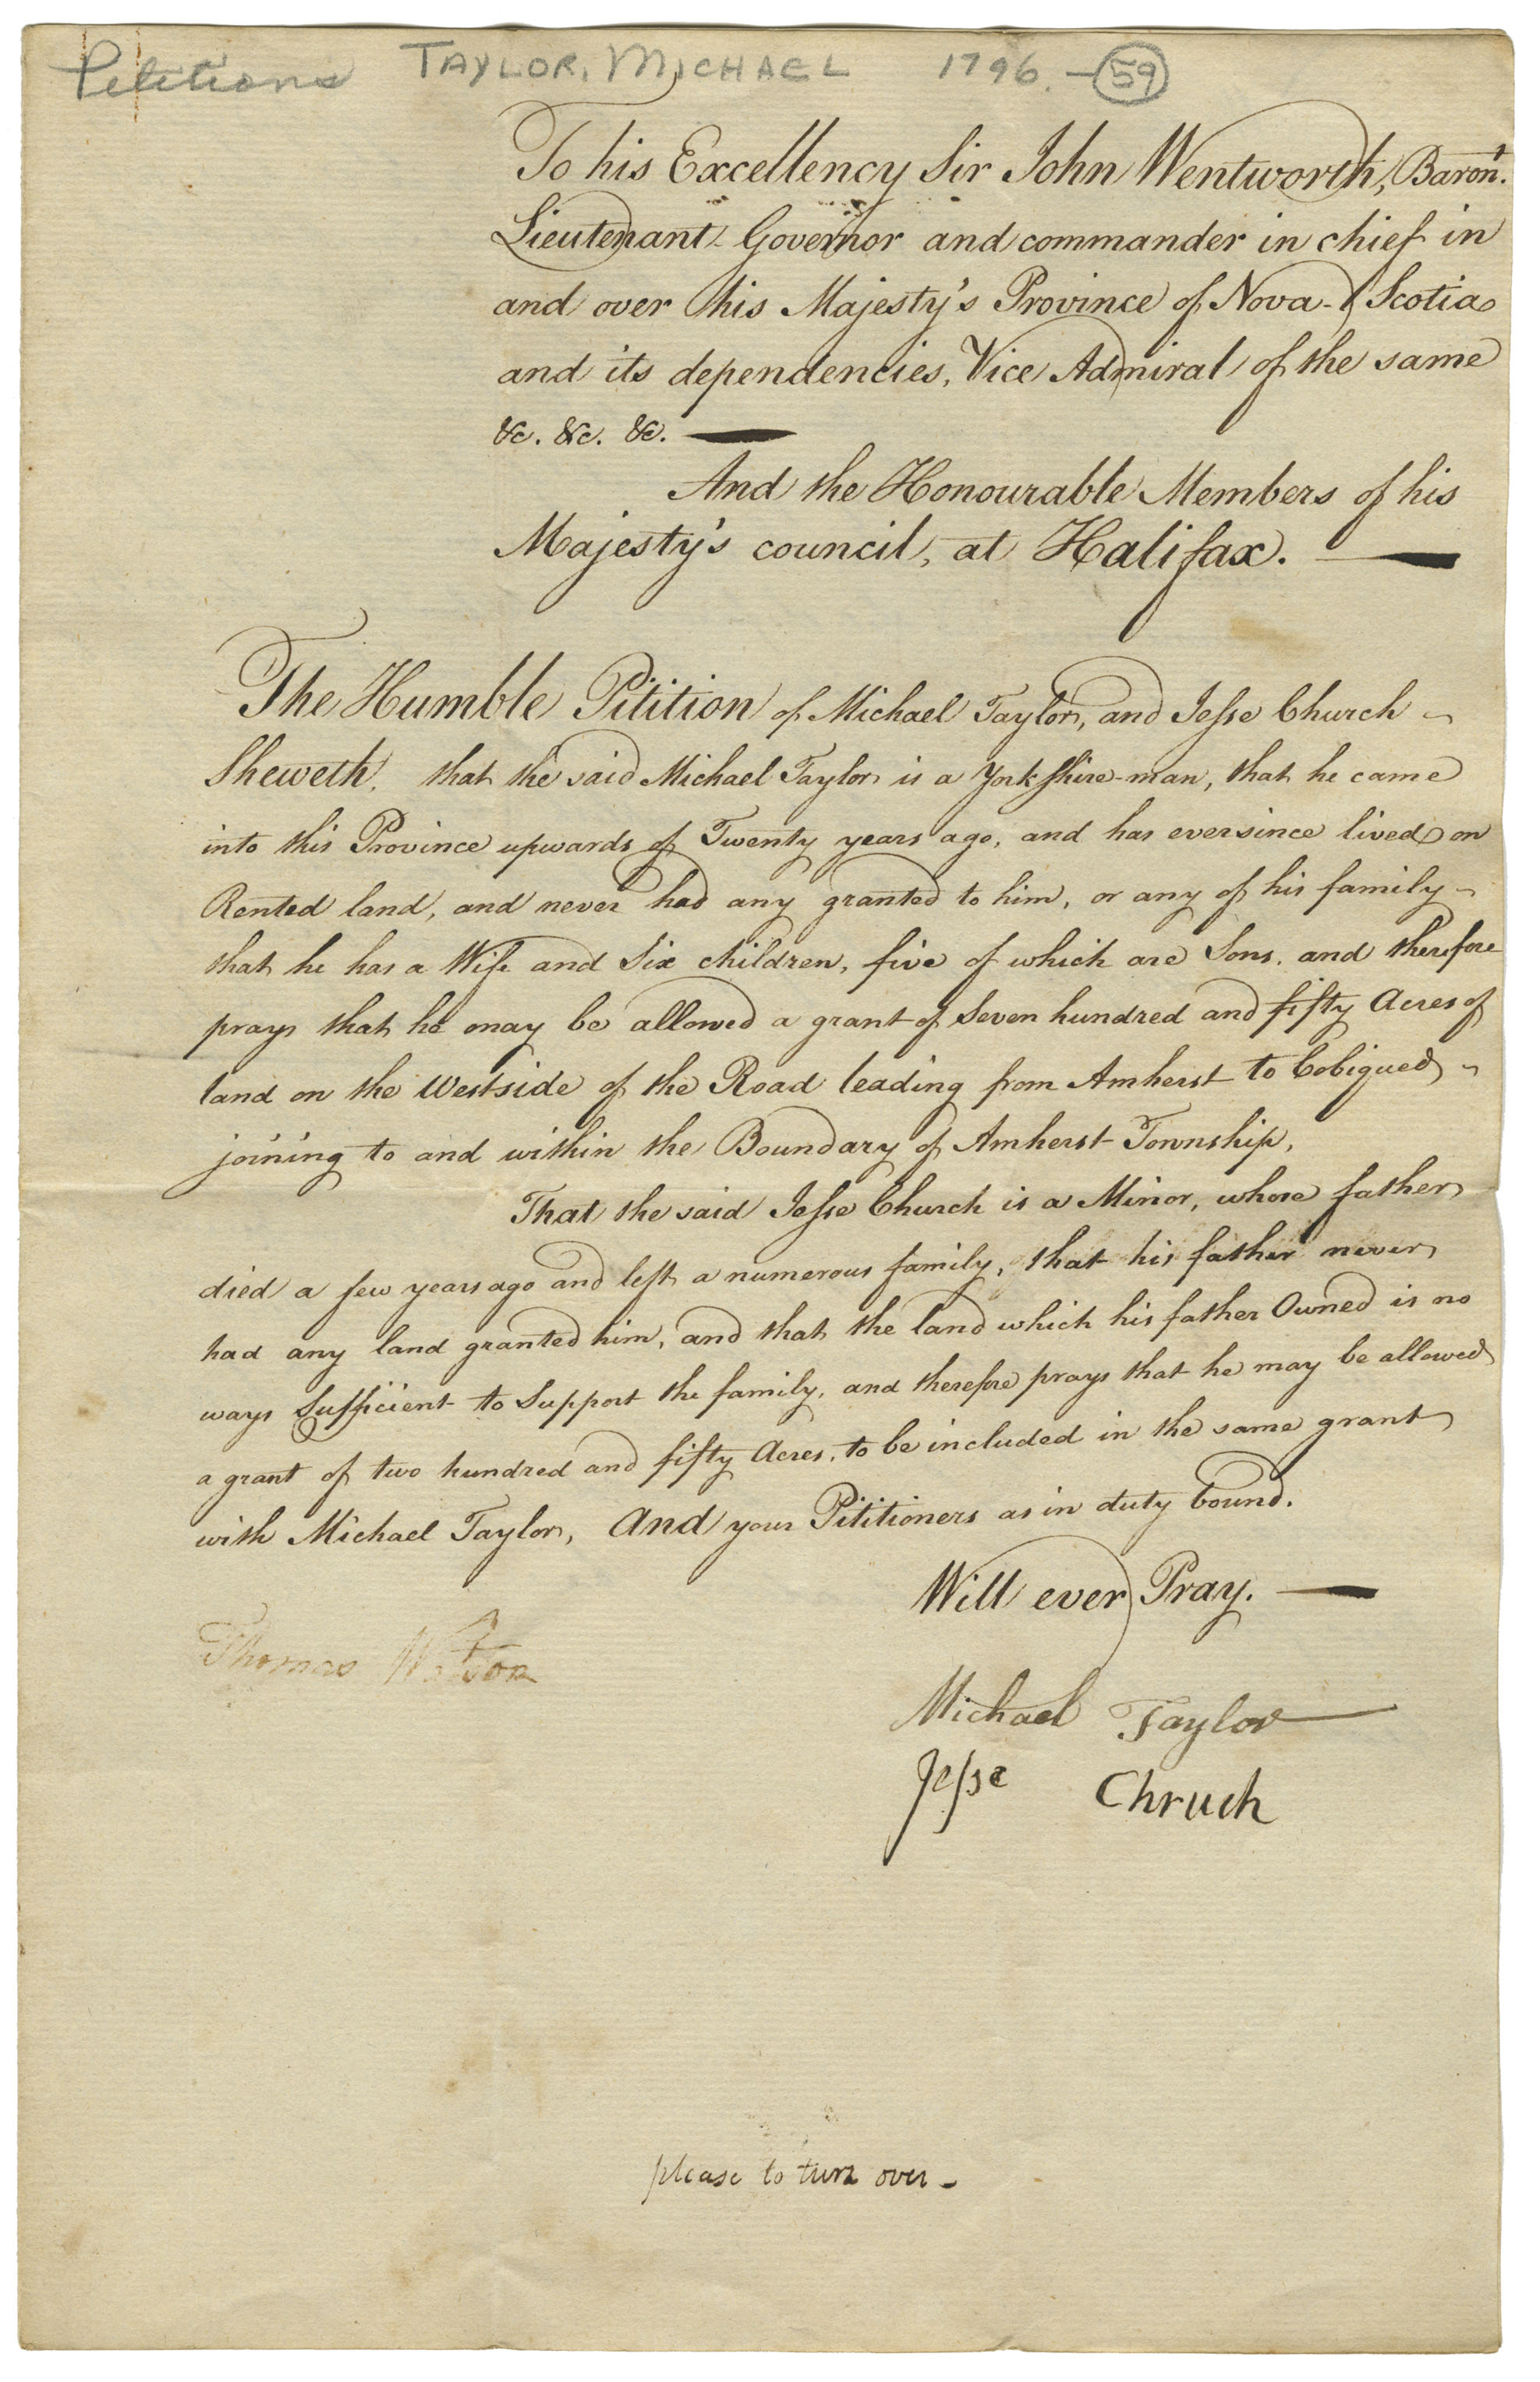 Petitions TAYLOR, MICHAEL 1796. - 59
To his Excellency Sir John Wentworth, Baron.t
Lieutenant Governor and commander in chief in
and over his Majesty's Province of Nova-Scotia
and its dependencies, Vice Admiral of the same
&c. &c. &c. —
And the Honourable Members of his
Majesty's council, at Halifax. —
The Humble Pitition of Michael Taylor, and Jesse Church
Sheweth. that the said Michael Taylor is a Yorkshire-man, that he came
into this Province upwards of Twenty years ago, and has eversince lived on
Rented land, and never had any granted to him, or any of his family
that he has a Wife and Six children, five of which are Sons. and therefore
prays that he may be allowed a grant of Seven hundred and fifty Acres of
land on the Westside of the Road leading from Amherst to Cobiqued
joining to and within the Boundary of Amherst Township,
That the said Jesse Church is a Minor, whose father
died a few years ago and left a numerous family, that his father never
had any land granted him, and that the land which his father Owned is no
ways Sufficient to Support the family, and therefore prays that he may be allowed
a grant of two hundred and fifty Acres, to be included in the same grant
with Michael Taylor, And your Pititioners as in duty bound.
Will ever Pray. —
Thomas Watson
Michael Taylor
Jesse Chruch
please to turn over -